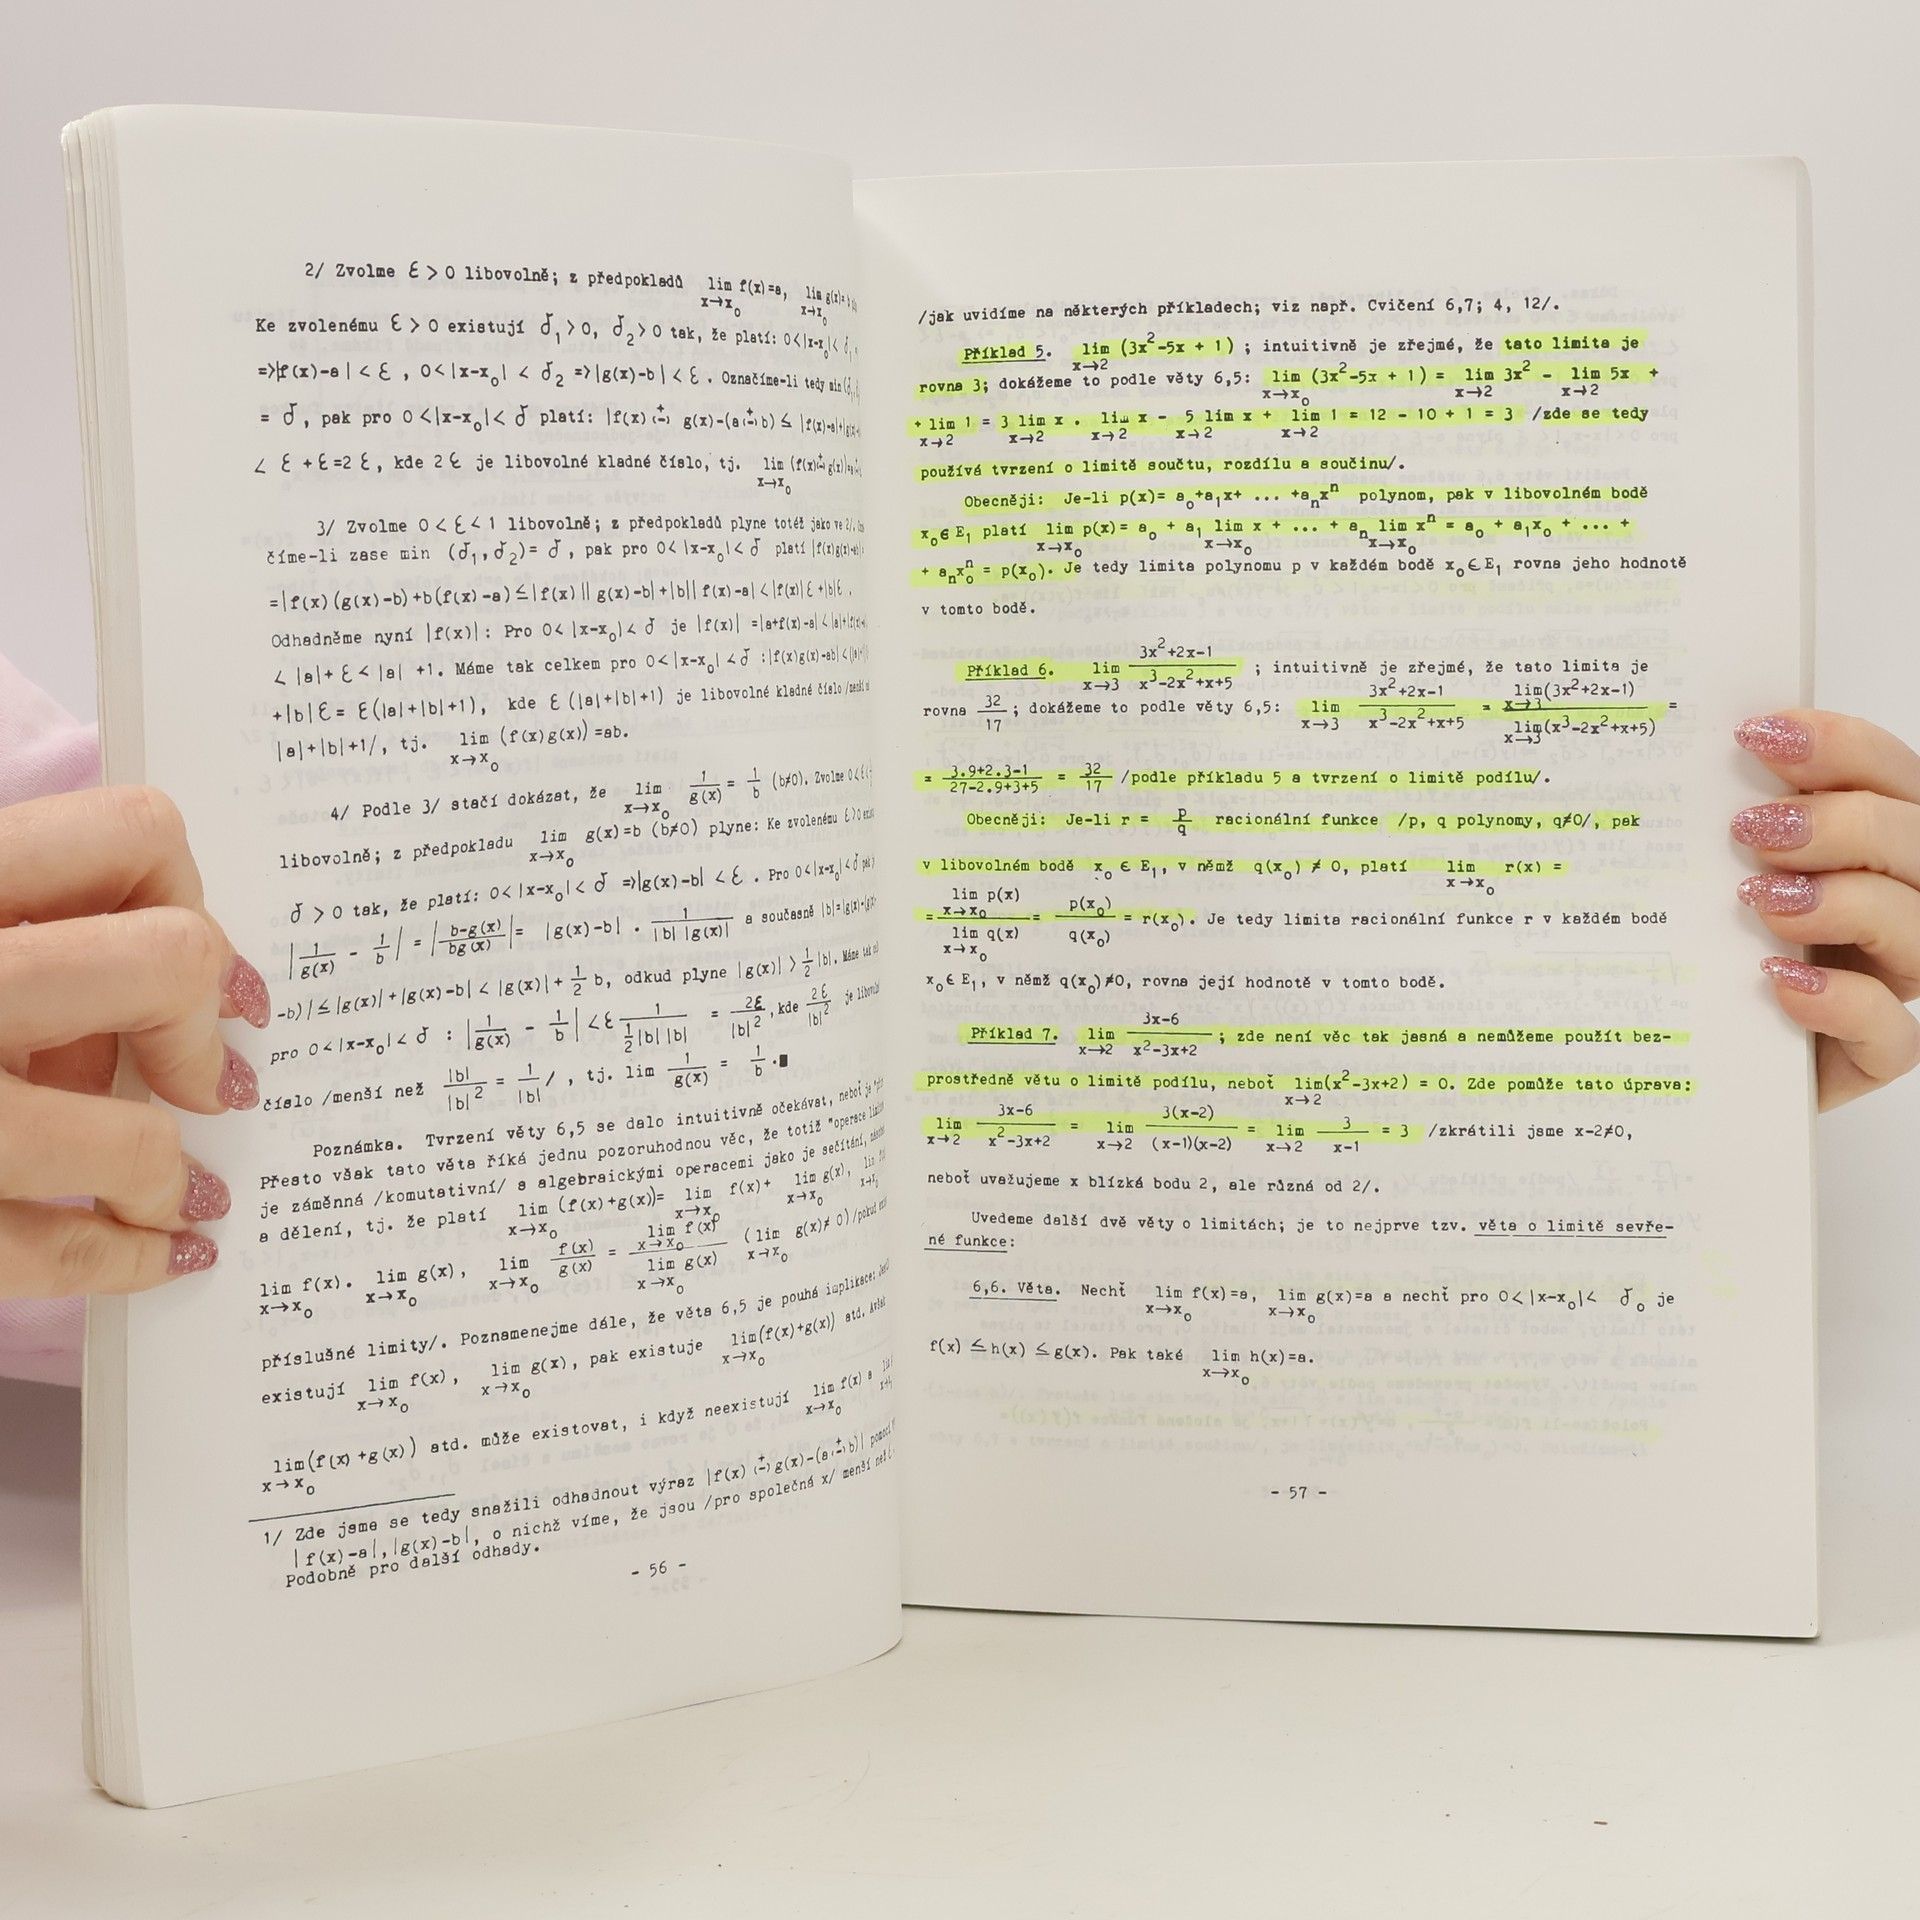 2/ Zvolme ε > 0 libovolně; z předpokladů lim f(x)=a, lim g(x)=
x→x₀ x→x₀
Ke zvolenému ε > 0 existují δ₁ > 0, δ₂ > 0 tak, že platí: 0<|x-x₀|< δ₁
=>|f(x)-a| < ε , 0<|x-x₀| < δ₂ =>|g(x)-b| < ε . Označíme-li tedy min
= δ, pak pro 0<|x-x₀|< δ platí: |f(x) (±) g(x)-(a (±) b) ≤ |f(x)-a|+
< ε + ε=2 ε, kde 2 ε je libovolné kladné číslo, tj. lim (f(x)(±)g(x))
x→x₀
3/ Zvolme 0 < ε < 1 libovolně; z předpokladů plyne totéž jako ve 2/.
číme-li zase min (δ₁,δ₂)= δ, pak pro 0< |x-x₀|< δ platí |f(x)g(x)-ab|
=|f(x)(g(x)-b)+b(f(x)-a)≤|f(x)||g(x)-b|+|b||f(x)-a|<|f(x)|ε+|b|ε.
Odhadněme nyní |f(x)|: Pro 0< |x-x₀|< δ je |f(x)| =|a+f(x)-a|<|a|+
< |a|+ ε < |a| +1. Máme tak celkem pro 0<|x-x₀| <δ :|f(x)g(x)-ab|<
+|b|ε= ε(|a|+|b|+1), kde ε(|a|+|b|+1) je libovolné kladné číslo /menší
|a|+|b|+1/, tj. lim (f(x)g(x))=ab.
x→x₀
4/ Podle 3/ stačí dokázat, že lim 1/g(x) = 1/b (b≠0). Zvolme 0<ε
x→x₀
libovolně; z předpokladu lim g(x)=b (b≠0) plyne: Ke zvolenému ε>0
x→x₀
δ > 0 tak, že platí: 0<|x-x₀|< δ =>|g(x)-b| < ε . Pro 0<|x-x₀|<δ
|1/g(x) - 1/b| = |b-g(x)/bg(x)|= |g(x)-b| . 1/|b||g(x)| a současně |b|=|g(x)-(g(x)
-b)|≤|g(x)|+|g(x)-b| < |g(x)|+ 1/2 b, odkud plyne |g(x)| > 1/2 |b|. Máme tak
pro 0<|x-x₀|< δ : |1/g(x) - 1/b| <ε 1/(1/2 |b| |b|) = 2ε/|b|², kde 2ε/|b|² je
číslo /menší než |b|/|b|² = 1/|b| / , tj. lim 1/g(x) = 1/b .■
Poznámka. Tvrzení věty 6,5 se dalo intuitivně očekávat, neboť je
Přesto však tato věta říká jednu pozoruhodnou věc, že totiž "operace
je záměnná /komutativní/ s algebraickými operacemi jako je sečítání,
a dělení, tj. že platí lim (f(x)+g(x))= lim f(x)+ lim g(x),
x→x₀ x→x₀ x→x₀
lim f(x). lim g(x), lim f(x)/g(x) = lim f(x)/lim g(x) (lim g(x)≠ 0)/pokud
x→x₀ x→x₀ x→x₀ x→x₀ x→x₀ x→x₀
příslušné limity/. Poznamenejme dále, že věta 6,5 je pouhá implikace:
existují lim f(x), lim g(x), pak existuje lim(f(x)+g(x)) atd.
x→x₀ x→x₀ x→x₀
lim(f(x)+g(x)) atd. může existovat, i když neexistují lim f(x) a
x→x₀ x→x₀
1/ Zde jsme se tedy snažili odhadnout výraz |f(x) (±) g(x)-(a (±) b)| pomocí
|f(x)-a|,|g(x)-b|, o nichž víme, že jsou /pro společná x/ menší než
Podobně pro další odhady.
- 56 -
/jak uvidíme na některých příkladech; viz např. Cvičení 6,7; 4, 12/.
Příklad 5. lim (3x²-5x + 1) ; intuitivně je zřejmé, že tato limita je
x→2
rovna 3; dokážeme to podle věty 6,5: lim (3x²-5x + 1) = lim 3x² - lim 5x +
x→x₀ x→2 x→2
+ lim 1 = 3 lim x . lim x - 5 lim x + lim 1 = 12 - 10 + 1 = 3 /zde se tedy
x→2 x→2 x→2 x→2 x→2
používá tvrzení o limitě součtu, rozdílu a součinu/.
Obecněji: Je-li p(x)= a₀+a₁x+ ... +aₙxⁿ polynom, pak v libovolném bodě
x₀∈E₁ platí lim p(x)= a₀ + a₁ lim x + ... + aₙ lim xⁿ = a₀ + a₁x₀ + ... +
x→x₀ x→x₀ x→x₀
+ aₙx₀ⁿ = p(x₀). Je tedy limita polynomu p v každém bodě x₀∈E₁ rovna jeho hodnotě
v tomto bodě.
Příklad 6. lim 3x²+2x-1/x³-2x²+x+5 ; intuitivně je zřejmé, že tato limita je
x→3
rovna 32/17 ; dokážeme to podle věty 6,5: lim 3x²+2x-1/x³-2x²+x+5 = lim(3x²+2x-1)/lim(x³-2x²+x+5) =
x→3 x→3 x→3
= 3.9+2.3-1/27-2.9+3+5 = 32/17 /podle příkladu 5 a tvrzení o limitě podílu/.
Obecněji: Je-li r = p/q racionální funkce /p, q polynomy, q≠0/, pak
v libovolném bodě x₀ ∈ E₁, v němž q(x₀) ≠ 0, platí lim r(x) =
x→x₀
= lim p(x)/lim q(x) = p(x₀)/q(x₀) = r(x₀). Je tedy limita racionální funkce r v každém bodě
x→x₀ x→x₀
x₀∈ E₁, v němž q(x₀)≠0, rovna její hodnotě v tomto bodě.
Příklad 7. lim 3x-6/x²-3x+2 ; zde není věc tak jasná a nemůžeme použít bez-
x→2
prostředně větu o limitě podílu, neboť lim(x²-3x+2) = 0. Zde pomůže tato úprava:
x→2
lim 3x-6/x²-3x+2 = lim 3(x-2)/(x-1)(x-2) = lim 3/x-1 = 3 /zkrátili jsme x-2≠0,
x→2 x→2 x→2
neboť uvažujeme x blízká bodu 2, ale různá od 2/.
Uvedeme další dvě věty o limitách; je to nejprve tzv. věta o limitě sevře-
né funkce:
6,6. Věta. Nechť lim f(x)=a, lim g(x)=a a nechť pro 0<|x-x₀|< δ₀ je
x→x₀ x→x₀
f(x) ≤ h(x) ≤ g(x). Pak také lim h(x)=a.
x→x₀
- 57 -